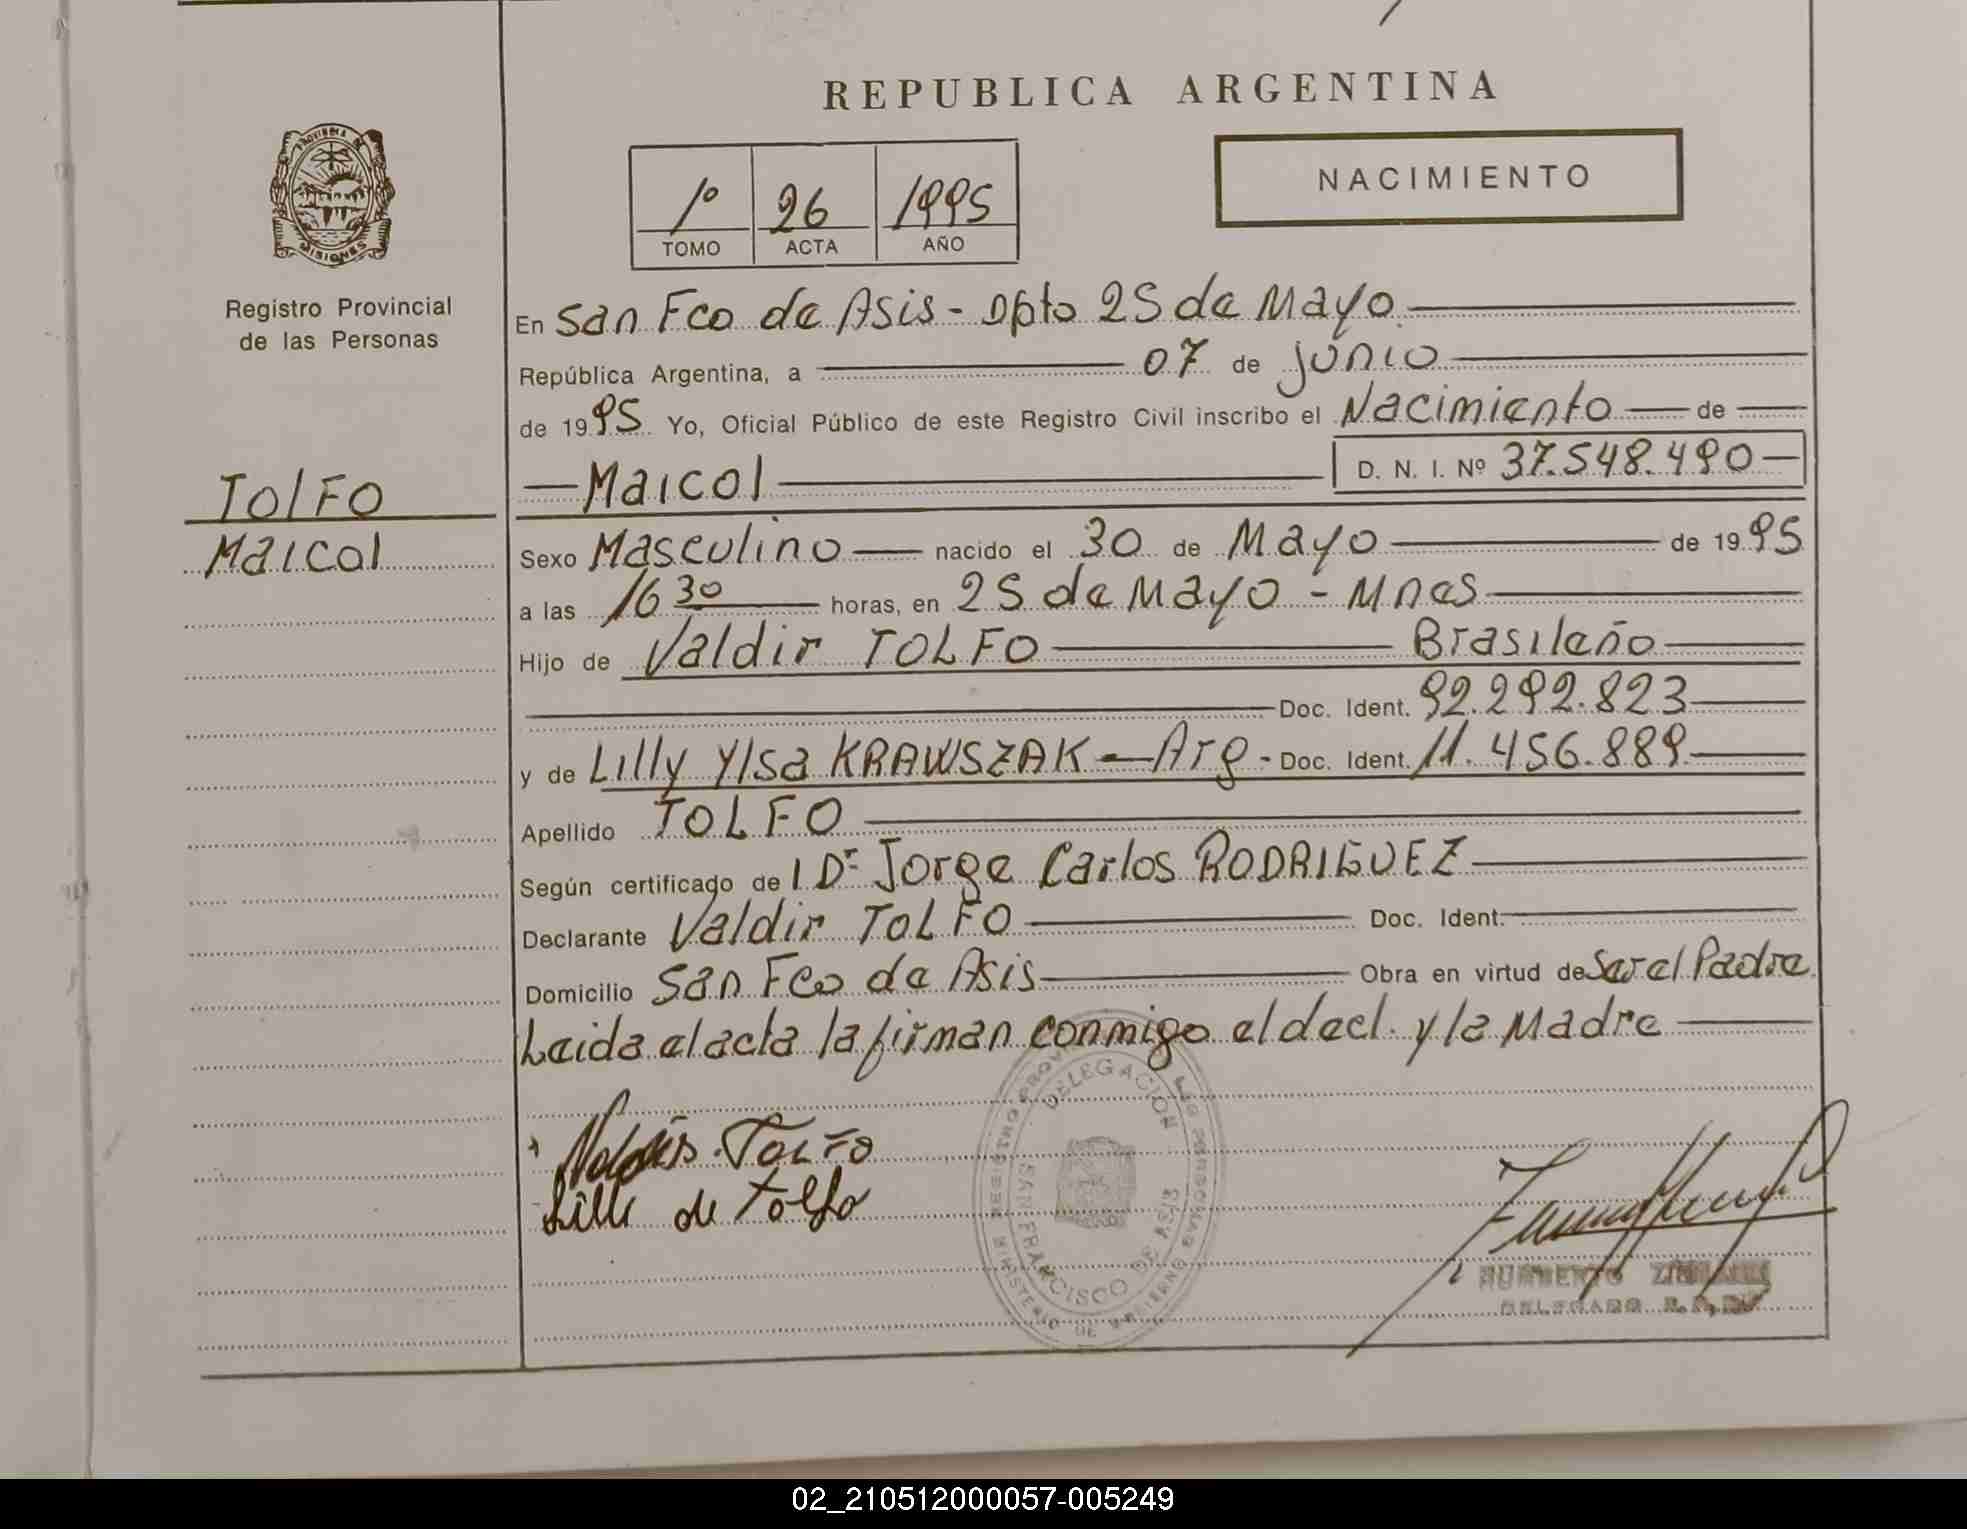 REPUBLICA ARGENTINA
PROVINCIA DE
MISIONES
Registro Provincial
de las Personas
1º 26 1995
TOMO ACTA AÑO
NACIMIENTO
En San Fco de Asis - Dpto 25 de Mayo
República Argentina, a 07 de junio
de 1995 Yo, Oficial Público de este Registro Civil inscribo el Nacimiento de
Maicol D. N. I. Nº 37.548.490
TOLFO
Maicol
Sexo Masculino nacido el 30 de Mayo de 1995
a las 16 30 horas, en 25 de Mayo - Mnes
Hijo de Valdir TOLFO Brasileño
Doc. Ident. 92.292.823
y de Lilly Ylsa KRAWSZAK - Arg - Doc. Ident. 11.456.889
Apellido TOLFO
Según certificado de l Dr Jorge Carlos RODRIGUEZ
Declarante Valdir TOLFO Doc. Ident.
Domicilio San Fco de Asis Obra en virtud de Ser el Padre
Leida el acta la firman conmigo el decl. y la Madre
TOLFO
Lilli de Tolfo
DELEGACION
SAN FRANCISCO DE ASIS
REGISTRO PROV DE LAS PERSONAS
MINISTERIO DE GOBIERNO
HUMBERTO
DELEGADO
02_210512000057-005249